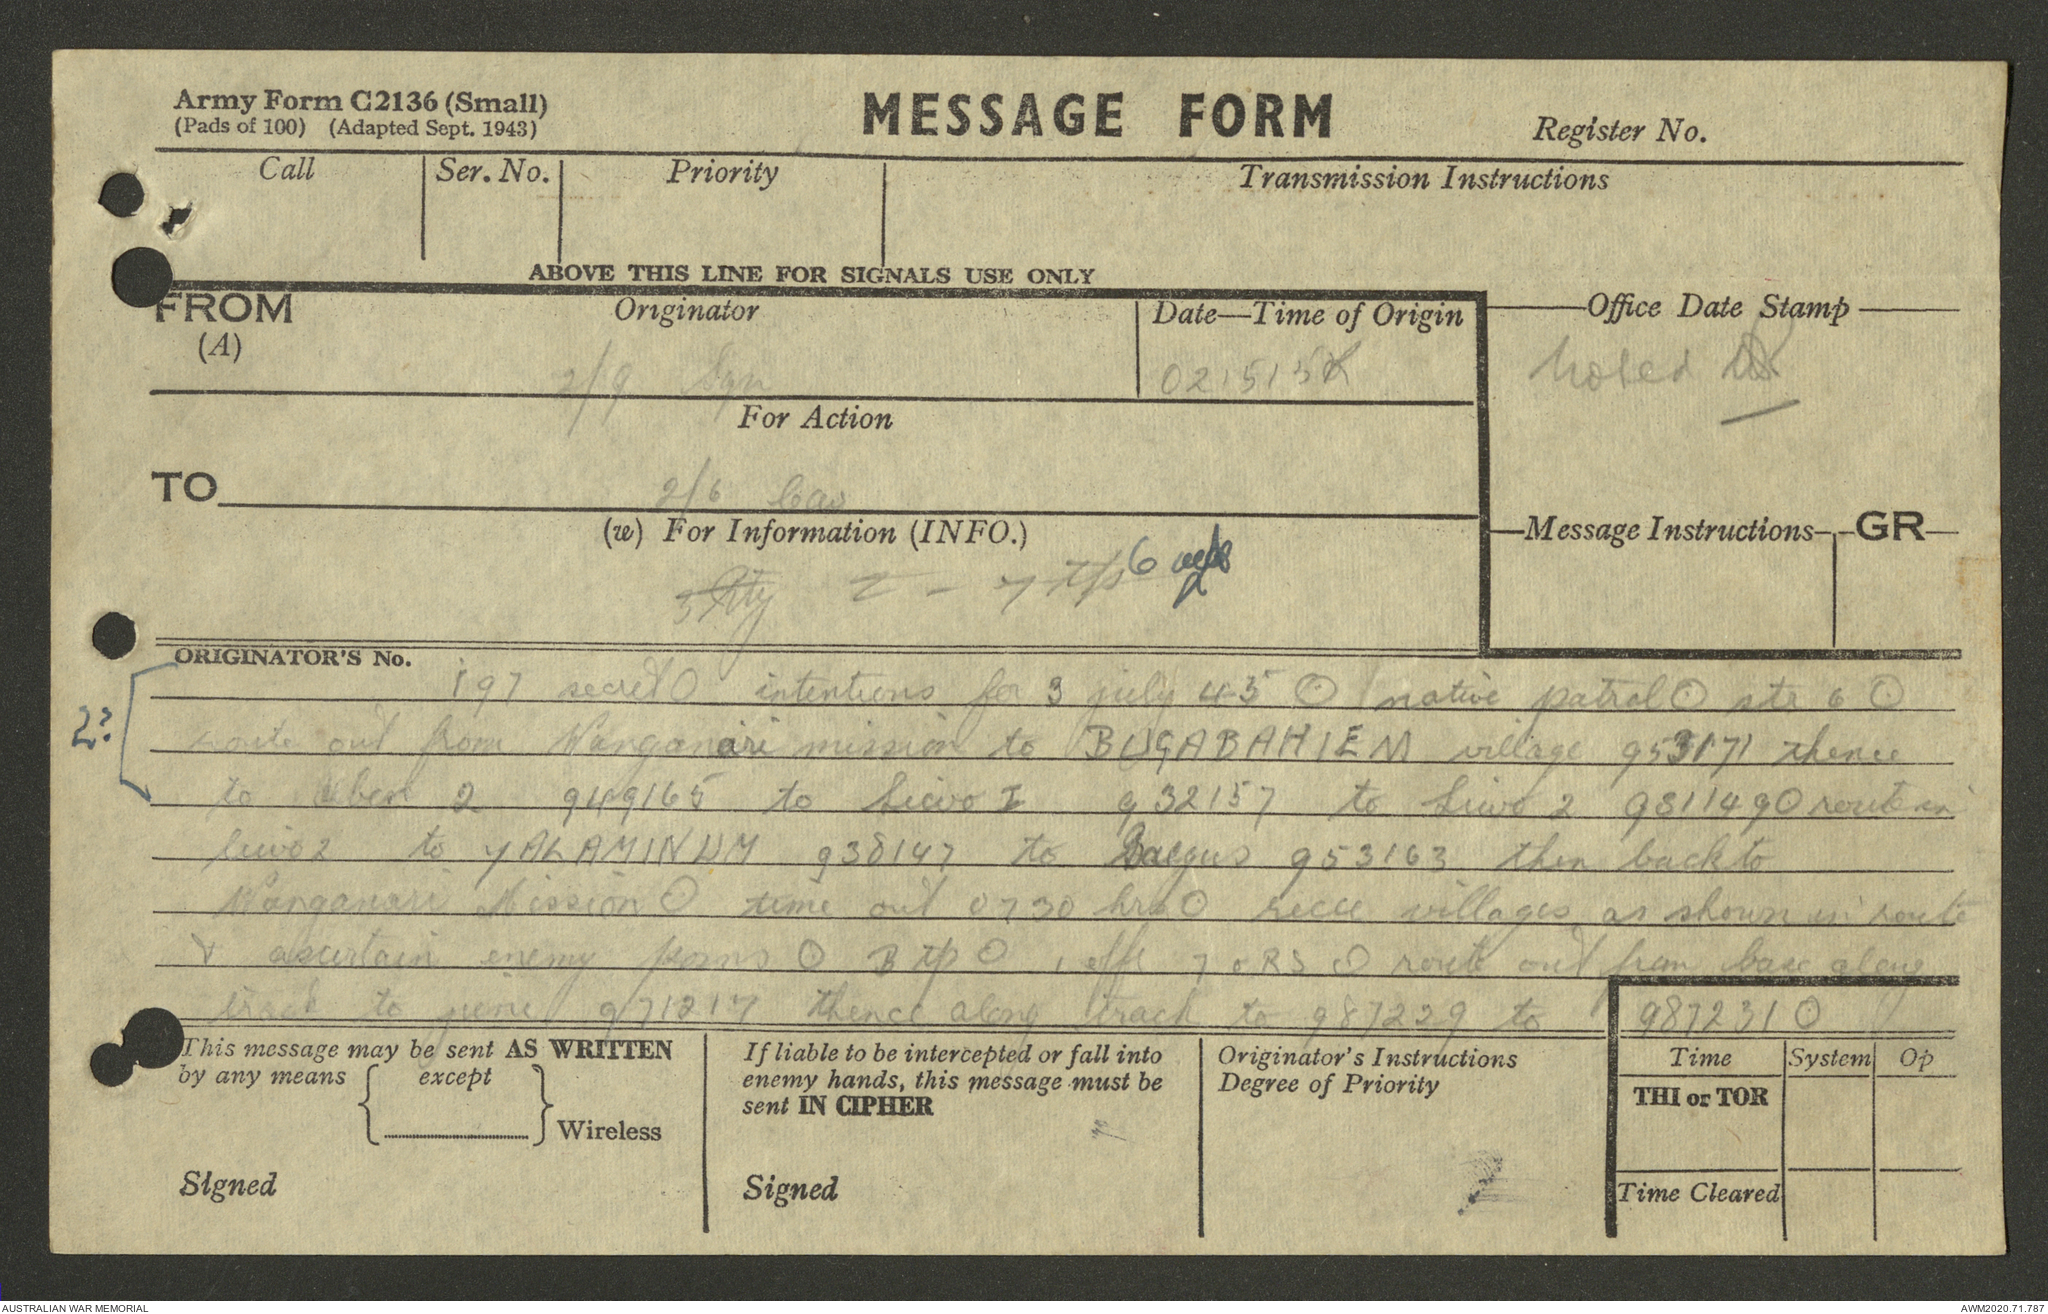 Army Form C2136 (Small)
(Pads of 100) (Adapted Sept. 1943)
MESSAGE FORM
Register No.
Call
Ser. No.
Priority
Transmission Instructions
ABOVE THIS LINE FOR SIGNALS USE ONLY
FROM
(A)
Originator
Date—Time of Origin
Office Date Stamp
2/9 Sqn
021515K
Noted
For Action
TO
2/6 Cav
(w) For Information (INFO.)
Message Instructions
GR
ORIGINATOR'S No.
197 secret O intentions for 3 july 45 O native patrol O str 6 O
2?
route out from Wanganari mission to BUGABAHIEM village 953171 thence
to 2 949165 to I 932157 to 2 981149 O route in
2 to YALAMINUM 938147 to 953163 then back to
Wanganari Mission O time out 0730 hrs O recce villages as shown in route
& ascertain enemy posns O B tp O 1 offr 7 ORS O route out from base along
track to 971217 thence along track to 987229 to 987231 O
This message may be sent AS WRITTEN
by any means { except } Wireless
If liable to be intercepted or fall into
enemy hands, this message must be
sent IN CIPHER
Originator's Instructions
Degree of Priority
Time
System
Op
THI or TOR
Signed
Signed
Time Cleared
AUSTRALIAN WAR MEMORIAL
AWM2020.71.787